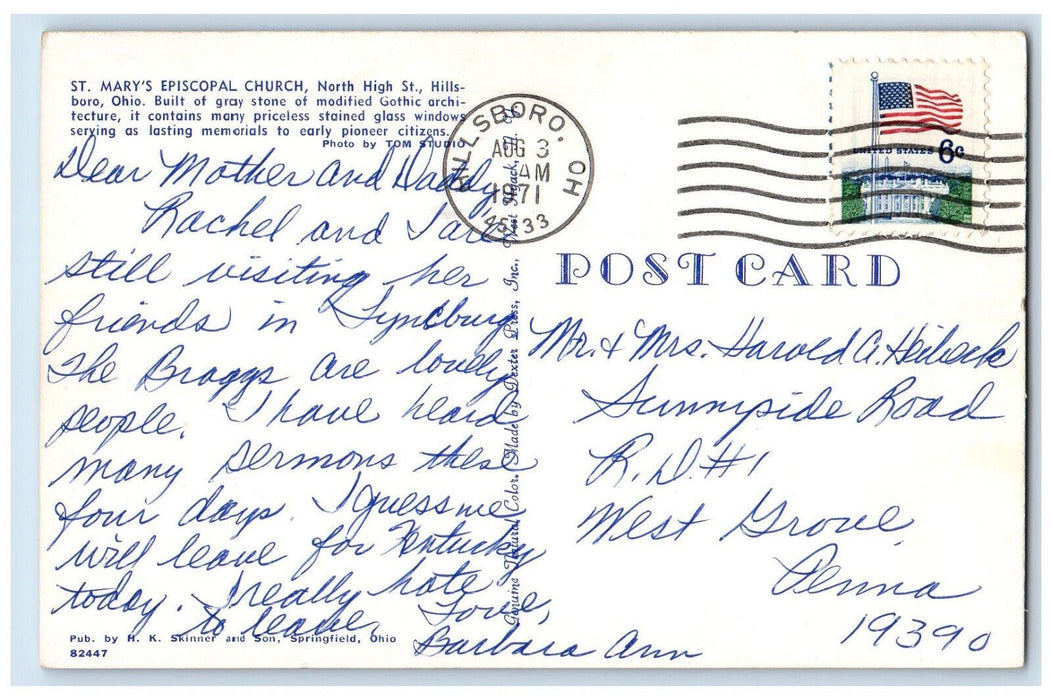 ST. MARY'S EPISCOPAL CHURCH, North High St., Hills-
boro, Ohio. Built of gray stone of modified Gothic archi-
tecture, it contains many priceless stained glass windows
serving as lasting memorials to early pioneer citizens.
Photo by TOM STUDIO
Dear Mother and Daddy,
Rachel and I are
still visiting her
friends in Lyncburg
The Braggs are lovely
people. I have heard
many sermons these
four days. I guess we
will leave for Kentucky
today. I really hate
to leave.
Love,
Barbara Ann
Pub. by H. K. Skinner and Son, Springfield, Ohio
82447
Genuine Natural Color. Made by Dexter Press, Inc., West Nyack, N. Y.
HILLSBORO, OH
AUG 3
AM
1971
45133
UNITED STATES 6c
POST CARD
Mr. & Mrs. Harold A. Heibeck
Sunnyside Road
R.D. #1
West Grove,
Penna
19390